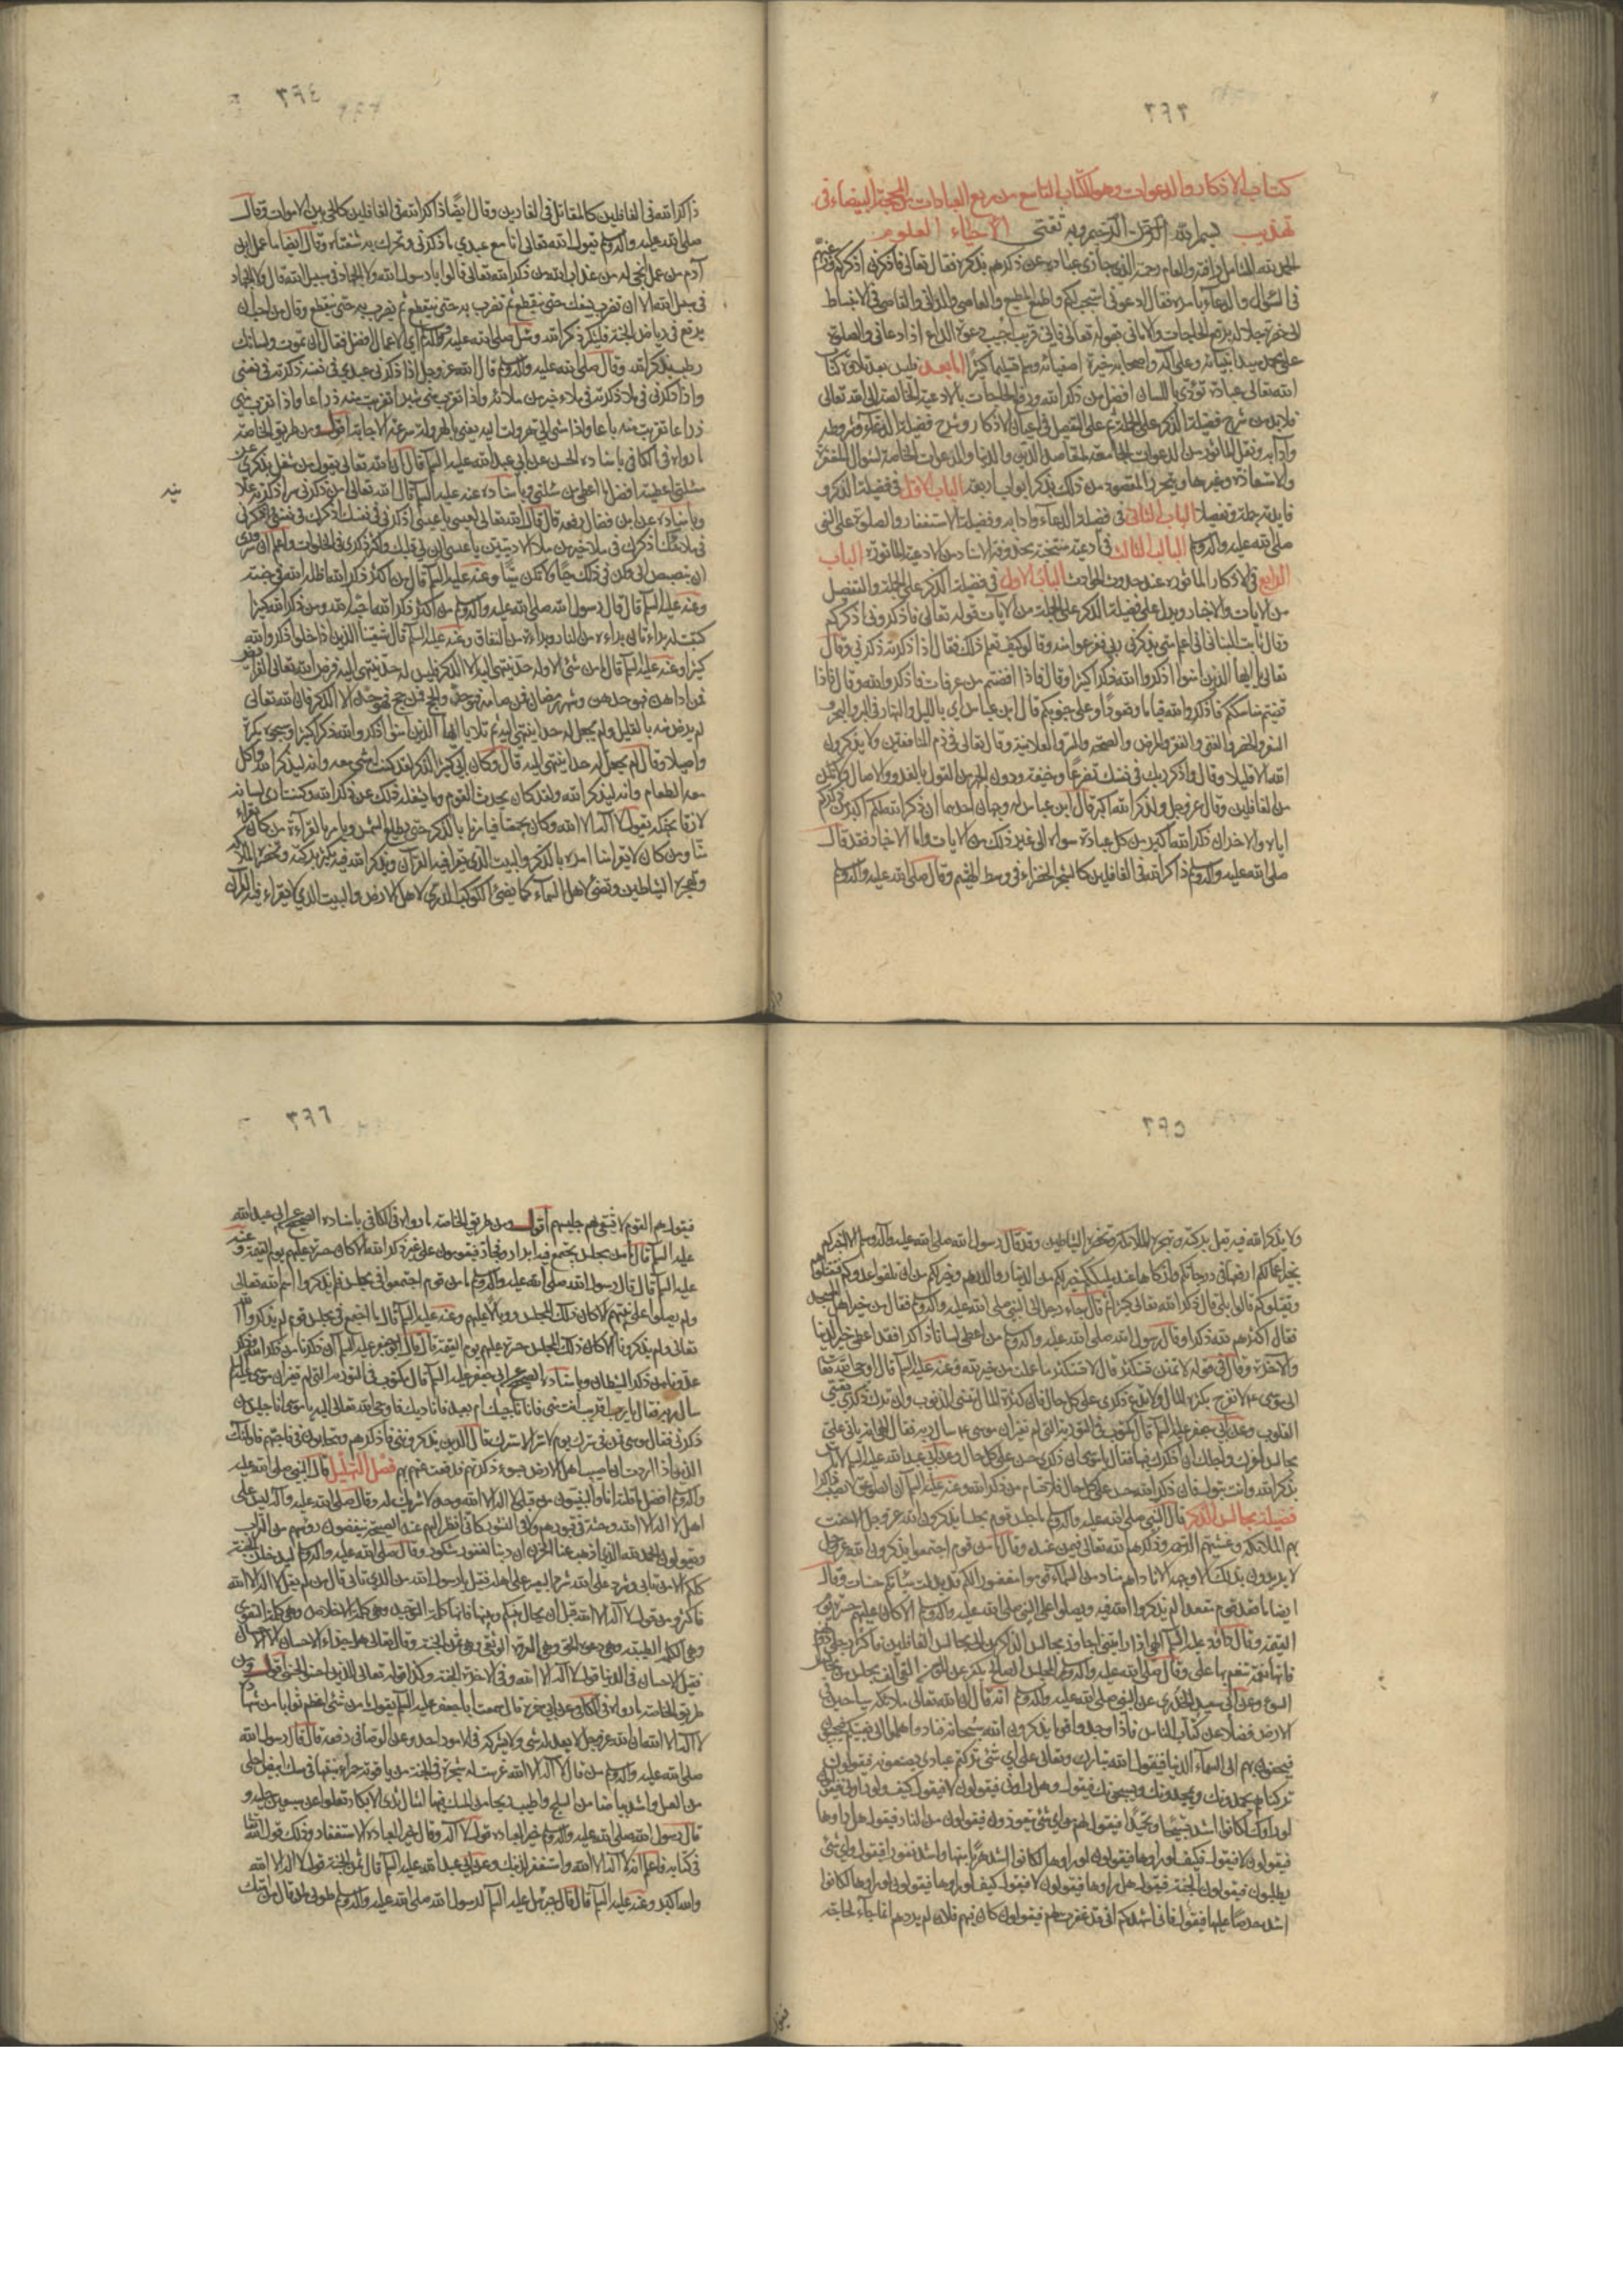 ٣٩٣
كتاب الاذكار والدعوات وهو الكتاب التاسع من ربع العبادات من المحجة البيضاء فى
تهذيب بسم الله الرحمن الرحيم وبه ثقتى الاحياء العلوم
الحمد لله الشامل رافته العام رحمته الذى جازى عباده عن ذكرهم بذكره فقال تعالى فاذكرونى اذكركم
فى السؤال والدعاء بامره فقال ادعونى استجب لكم واطمع المطيع والعاصى والدانى والقاصى فى الانبساط
الى حضرة جلاله برفع الحاجات والامانى بقوله تعالى فانى قريب اجيب دعوة الداع اذا دعانى والصلوة
على محمد سيد انبيائه وعلى آله واصحابه خيرة اصفيائه وسلم تسليما كثيرا اما بعد فليس بعد تلاوة كتاب
الله تعالى عبادة تؤدى باللسان افضل من ذكر الله ورفع الحاجات بالادعية الخالصة الى الله تعالى
فلابد من شرح فضيلة الذكر على الجملة ثم على التفصيل فى اعيان الاذكار وشرح فضيلة الدعاء وشروطه
وآدابه ونقل الماثور من الدعوات الجامعة لمقاصد الدين والدنيا والدعوات الخاصة لسؤال المغفرة
والاستعاذة وغيرها ويتحرر المقصود من ذلك بذكر ابواب اربعة الباب الاول فى فضيلة الذكر و
فايدته جملة وتفصيلا الباب الثانى فى فضيلة الدعاء وادابه وفضيلة الاستغفار والصلوة على النبى
صلى الله عليه وآله وسلم الباب الثالث فى ادعية منتخبة محذوفة الاسناد من الادعية الماثورة الباب
الرابع فى الاذكار الماثورة عند حدوث الحوادث الباب الاول فى فضيلة الذكر على الجملة والتفصيل
من الايات والاخبار ويدل على فضيلة الذكر على الجملة من الآيات قوله تعالى فاذكرونى اذكركم
وقال ثابت البنانى انى اعلم متى يذكرنى ربى ففزعوا منه وقالوا كيف تعلم ذلك فقال اذا ذكرته ذكرنى وقال
تعالى يا ايها الذين امنوا اذكروا الله ذكرا كثيرا وقال فاذا افضتم من عرفات فاذكروا الله وقال فاذا
قضيتم مناسككم فاذكروا الله قياما وقعودا وعلى جنوبكم قال ابن عباس اى بالليل والنهار فى البر والبحر و
السفر والحضر والغنى والفقر والمرض والصحة والسر والعلانية وقال تعالى فى ذم المنافقين ولا يذكرون
الله الا قليلا وقال واذكر ربك فى نفسك تضرعا وخيفة ودون الجهر من القول بالغدو والاصال ولا تكن
من الغافلين وقال عز وجل ولذكر الله اكبر قال ابن عباس له وجهان احدهما ان ذكر الله لكم اكبر من ذكركم
اياه والاخر ان ذكر الله اكبر من كل عبادة سواه الى غير ذلك من الايات واما الاخبار فقد قال
صلى الله عليه وآله وسلم ذاكر الله فى الغافلين كالشجر الخضراء فى وسط الهشيم وقال صلى الله عليه وآله وسلم
٣٩٤
ذاكر الله فى الغافلين كالمقاتل فى الفارين وقال ايضا ذاكر الله فى الغافلين كالحى بين الاموات وقال
صلى الله عليه وآله وسلم يقول الله تعالى انا مع عبدى ما ذكرنى وتحرك به شفتاه وقال ايضا ما عمل ابن
آدم من عمل انجى له من عذاب الله من ذكر الله تعالى قالوا يا رسول الله ولا الجهاد فى سبيل الله قال ولا الجهاد
فى سبيل الله الا ان تضرب بسيفك حتى ينقطع ثم تضرب به حتى ينقطع ثم تضرب به حتى ينقطع وقال من احب ان
يرتع فى رياض الجنة فليكثر ذكر الله وسئل صلى الله عليه وآله وسلم اى الاعمال افضل فقال ان تموت ولسانك
رطب بذكر الله وقال صلى الله عليه وآله وسلم قال الله عز وجل اذا ذكرنى عبدى فى نفسه ذكرته فى نفسى
واذا ذكرنى فى ملاء ذكرته فى ملاء خير من ملائه واذا تقرب منى شبرا تقربت منه ذراعا واذا تقرب منى
ذراعا تقربت منه باعا واذا مشى الى هرولت اليه يعنى بالهرولة سرعة الاجابة اقول ومن طريق الخاصة
ما رواه فى الكافى باسناده الحسن عن ابى عبد الله عليه السلم قال ان الله تعالى يقول من شغل بذكرى عن
مسئلتى اعطيته افضل ما اعطى من سئلنى وباسناده عنه عليه السلم قال الله تعالى من ذكرنى سرا ذكرته علا
نيه
وباسناده عن ابن فضال رفعه قال قال الله تعالى لعيسى يا عيسى اذكرنى فى نفسك اذكرك فى نفسى واذكرنى
فى ملائك اذكرك فى ملاء خير من ملاء الادميين يا عيسى الن لى قلبك واكثر ذكرى فى الخلوات واعلم ان سرورى
ان تبصبص الى وكن فى ذلك حيا ولا تكن ميتا وعنه عليه السلم قال من اكثر ذكر الله اظله الله فى جنته
وعنه عليه السلم قال قال رسول الله صلى الله عليه وآله وسلم من اكثر ذكر الله احبه الله ومن ذكر الله كثيرا
كتبت له براءتان براءة من النار وبراءة من النفاق وعنه عليه السلم قال شيعتنا الذين اذا خلوا ذكروا الله
كثيرا وعنه عليه السلم قال ما من شئ الا وله حد ينتهى اليه الا الذكر فليس له حد ينتهى اليه فرض الله تعالى الفرائض
فمن اداهن فهو حدهن وشهر رمضان فمن صامه فهو حده والحج فمن حج فهو حده الا الذكر فان الله تعالى
لم يرض منه بالقليل ولم يجعل له حدا ينتهى اليه ثم تلا يا ايها الذين امنوا اذكروا الله ذكرا كثيرا وسبحوه بكرة
واصيلا وقال لم يجعل له حدا ينتهى اليه قال وكان ابى كثير الذكر لقد كنت امشى معه وانه ليذكر الله واكل
معه الطعام وانه ليذكر الله ولقد كان يحدث القوم وما يشغله ذلك عن ذكر الله وكنت ارى لسانه
لازقا بحنكه يقول لا اله الا الله وكان يجمعنا فيامرنا بالذكر حتى تطلع الشمس ويامر بالقراءة من كان يقراء
منا ومن كان لا يقرا منا امره بالذكر والبيت الذى يقرا فيه القرآن ويذكر الله فيه يكثر بركته وتحضره الملائكة
وتهجره الشياطين وتضئ لاهل السماء كما يضئ الكوكب الدرى لاهل الارض والبيت الذى لا يقراء فيه القرآن
٣٩٥
ولا يذكر الله فيه تقل بركته وتهجره الملائكة وتحضره الشياطين وقد قال رسول الله صلى الله عليه وآله وسلم الا اخبركم
بخير اعمالكم ارفعها فى درجاتكم وازكاها عند مليككم خير لكم من الدينار والدرهم وخير لكم من ان تلقوا عدوكم فتقتلوهم
ويقتلوكم قالوا بلى قال ذكر الله تعالى كثيرا ثم قال جاء رجل الى النبى صلى الله عليه وآله وسلم فقال من خير اهل المسجد
فقال اكثرهم لله ذكرا وقال رسول الله صلى الله عليه وآله وسلم من اعطى لسانا ذاكرا فقد اعطى خير الدنيا
والآخرة وقال فى قوله لا تمنن تستكثر قال لا تستكثر ما عملت من خير لله وعنه عليه السلم قال اوحى الله تعالى
الى موسى ع لا تفرح بكثرة المال ولا تدع ذكرى على كل حال فان كثرة المال تنسى الذنوب وان ترك ذكرى يقسى
القلوب وعن ابى جعفر عليه السلم قال مكتوب فى التورية التى لم تغير ان موسى ع سال ربه فقال الهى انه ياتى على
مجالس اعزك واجلك ان اذكرك فيها فقال يا موسى ان ذكرى حسن على كل حال وعن ابى عبد الله عليه السلم لا باس
بذكر الله وانت تبول فان ذكر الله حسن على كل حال فلا تسام من ذكر الله وعنه عليه السلم ان الصاعقة لا تصيب ذاكرا
فضيلة مجالس الذكر قال النبى صلى الله عليه وآله وسلم ما جلس قوم مجلسا يذكرون الله عز وجل الا حفت
بهم الملائكة وغشيتهم الرحمة وذكرهم الله تعالى فيمن عنده وقال ما من قوم اجتمعوا يذكرون الله عز وجل
لا يريدون بذلك الا وجهه الا ناداهم مناد من السماء قوموا مغفورا لكم قد بدلت سيئاتكم حسنات وقال
ايضا ما قعد قوم مقعدا لم يذكروا الله فيه ويصلوا على النبى صلى الله عليه وآله وسلم الا كان عليهم حسرة يوم
القيمة وقال داود عليه السلم الهى اذا رايتنى اجاوز مجالس الذاكرين الى مجالس الغافلين فاكسر رجلى دونهم
فانها نعمة تنعم بها على وقال صلى الله عليه وآله وسلم المجلس الصالح يكفر عن المؤمن الفى الف مجلس من مجالس
السوء وعن ابى سعيد الخدرى عن النبى صلى الله عليه وآله وسلم انه قال ان لله تعالى ملائكة سياحين فى
الارض فضلا عن كتاب الناس فاذا وجدوا قوما يذكرون الله سبحانه تنادوا هلموا الى بغيتكم فيجيئون
فيحفون بهم الى السماء الدنيا فيقول الله تبارك وتعالى على اى شئ تركتم عبادى يصنعونه فيقولون
تركناهم يحمدونك ويمجدونك ويسبحونك فيقول وهل راونى فيقولون لا فيقول كيف ولو راونى فيقولون
لو راوك لكانوا اشد تسبيحا وتمجيدا فيقول لهم من اى شئ يتعوذون فيقولون من النار فيقول هل راوها
فيقولون لا فيقول فكيف لو راوها فيقولون لو راوها لكانوا اشد هربا منها واشد نفورا فيقول واى شئ
يطلبون فيقولون الجنة فيقول هل راوها فيقولون لا فيقول كيف لو راوها فيقولون لو راوها لكانوا
اشد حرصا عليها فيقول فانى اشهدكم انى قد غفرت لهم فيقولون كان فيهم فلان لم يردهم انما جاء لحاجة
٣٩٦
فيقول هم القوم لا يشقى هم جليسهم اقول ومن طريق الخاصة ما رواه فى الكافى باسناده الصحيح عن ابى عبد الله
عليه السلم قال ما من مجلس يجتمع فيه ابرار وفجار فيقومون على غير ذكر الله الا كان حسرة عليهم يوم القيمة وعنه
عليه السلم قال قال رسول الله صلى الله عليه وآله وسلم ما من قوم اجتمعوا فى مجلس فلم يذكروا اسم الله تعالى
ولم يصلوا على نبيهم الا كان ذلك المجلس وبالا عليهم وعنه عليه السلم قال ما اجتمع فى مجلس قوم لم يذكروا الله
تعالى ولم يذكرونا الا كان ذلك المجلس حسرة عليهم يوم القيمة ثم قال قال ابو جعفر عليه السلم ان ذكرنا من ذكر الله وذكر
عدونا من ذكر الشيطان وباسناده الصحيح عن ابى جعفر عليه السلم قال مكتوب فى التورية التى لم تغير ان موسى عليه السلم
سال ربه فقال يا رب اقريب انت منى فاناجيك ام بعيد فاناديك فاوحى الله تعالى اليه يا موسى انا جليس من
ذكرنى فقال موسى فمن فى سترك يوم لا ستر الا سترك قال الذين يذكروننى فاذكرهم ويتحابون فى فاحبهم فاولئك
الذين اذا اردت ان اصيب اهل الارض بسوء ذكرتهم فدفعت عنهم بهم فضل التهليل قال النبى صلى الله عليه
وآله وسلم افضل ما قلته انا والنبيون من قبلى لا اله الا الله وحده لا شريك له وقال صلى الله عليه وآله ليس على
اهل لا اله الا الله وحشة فى قبورهم ولا فى النشور كانى انظر اليهم عند الصيحة ينفضون رؤسهم من التراب
ويقولون الحمد لله الذى اذهب عنا الحزن ان ربنا لغفور شكور وقال صلى الله عليه وآله وسلم ليدخلن الجنة
كلكم الا من تابى وشرد على الله شرد البعير على اهله فقيل يا رسول الله من الذى تابى قال من لم يقل لا اله الا الله
فاكثروا من قول لا اله الا الله قبل ان يحال بينكم وبينها فانها كلمة التوحيد وهى كلمة الاخلاص وهى كلمة التقوى
وهى الكلمة الطيبة وهى دعوة الحق وهى العروة الوثقى وهى ثمن الجنة وقال تعالى هل جزاء الاحسان الا الاحسان
فقيل الاحسان فى الدنيا قول لا اله الا الله وفى الاخرة الجنة وكذا قوله تعالى للذين احسنوا الحسنى اقول ومن
طريق الخاصة ما رواه فى الكافى عن ابى حمزة قال سمعت ابا جعفر عليه السلم يقول ما من شئ اعظم ثوابا من شهادة
لا اله الا الله ان الله عز وجل لا يعدله شئ ولا يشركه فى الامور احد وعن الوصافى رفعه قال قال رسول الله
صلى الله عليه وآله وسلم من قال لا اله الا الله غرست له شجرة فى الجنة من ياقوتة حمراء منبتها فى مسك ابيض احلى
من العسل واشد بياضا من الثلج واطيب ريحا من المسك فيها امثال ثدى الابكار تعلو عن سبعين حلة و
قال رسول الله صلى الله عليه وآله وسلم خير العبادة قول لا اله الا الله وقال خير العبادة الاستغفار وذلك قول الله تعالى
فى كتابه فاعلم انه لا اله الا الله واستغفر لذنبك وعن ابى عبد الله عليه السلم قال ثمن الجنة قول لا اله الا الله
والله اكبر وعنه عليه السلم قال قال جبرئيل عليه السلم لرسول الله صلى الله عليه وآله وسلم طوبى لمن قال من امتك